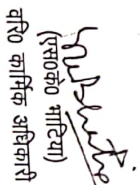 (एस०के० भाटिया)
वरि० कार्मिक अधिकारी